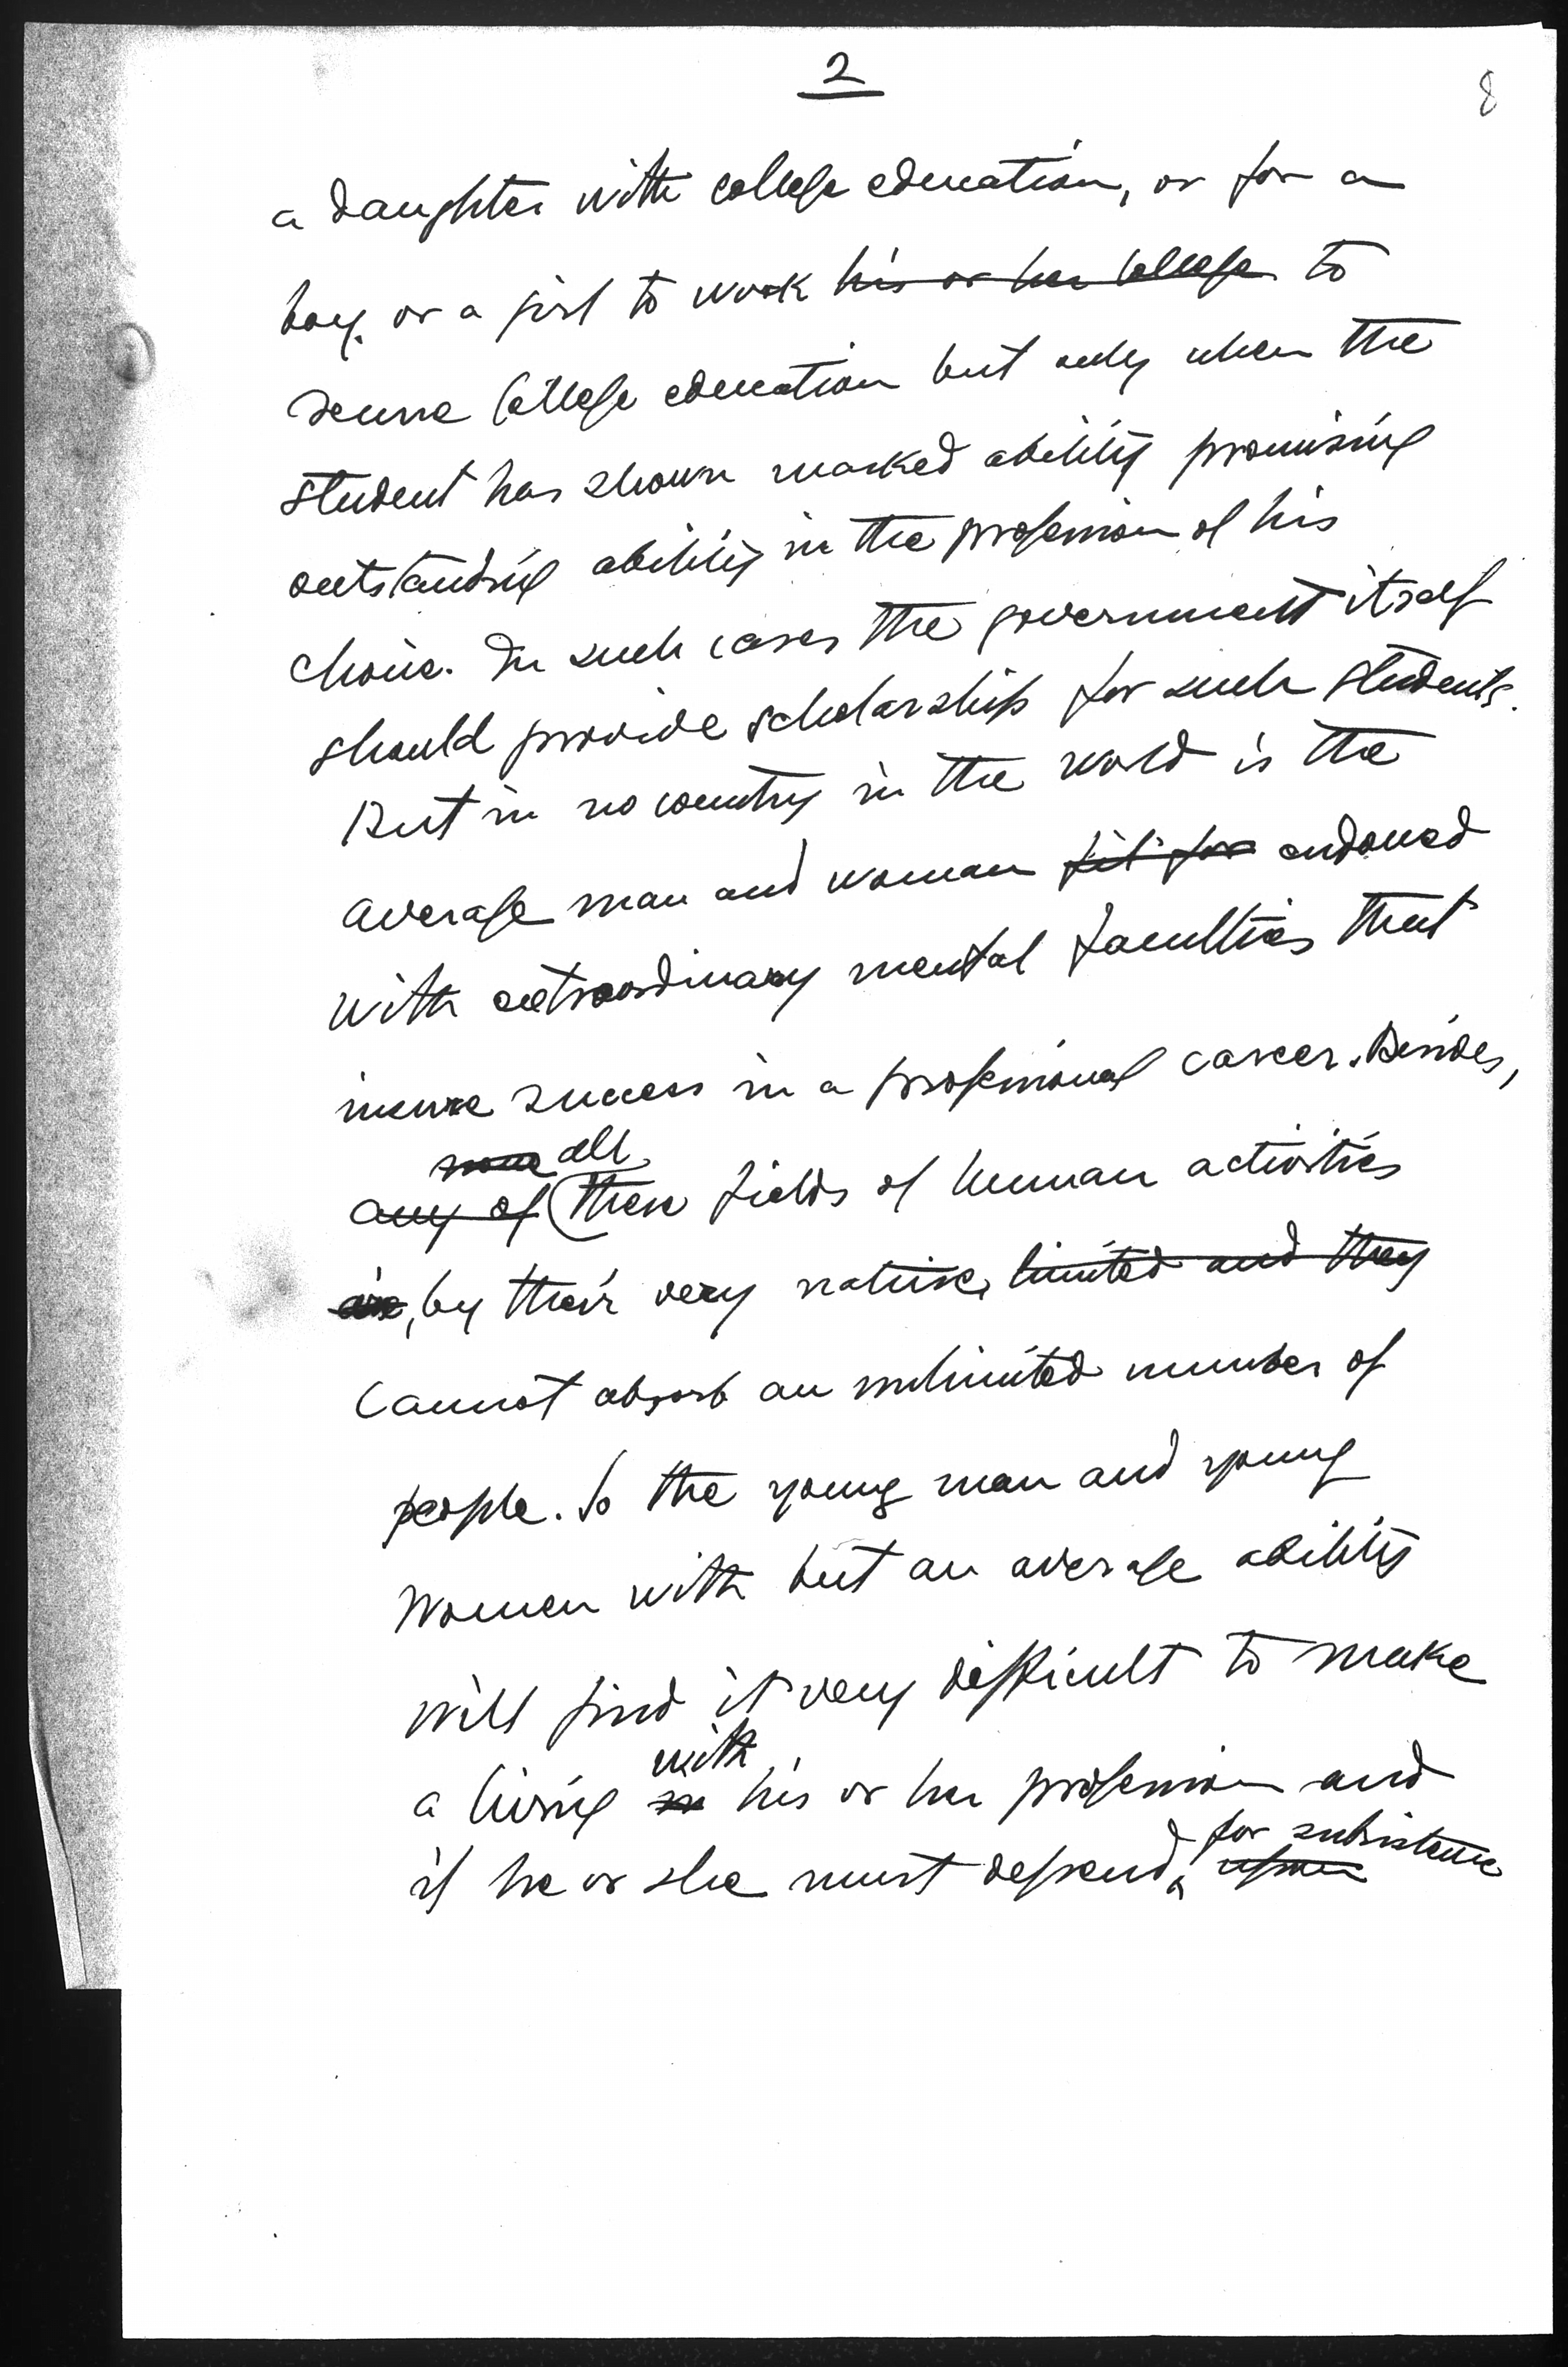 2
8
a daughter with college education, or for a
boy. or a girl to work his or her College to
secure College education but only when the
student has shown marked ability promising
outstanding ability in the profession of his
choice. In such cases the government itself
should provide scholarships for such students.
But in no country in the world is the
average man and woman fit for endowed
with extraordinary mental faculties that
insure success in a professional career. Besides,
all
any of these fields of human activities
are, by their very nature, limited and they
cannot absorb an unlimited number of
people. So the young man and young
women with but an average ability
will find it very difficult to make
with
a living in his or her profession and
for subsistence
if he or she must depend, upon